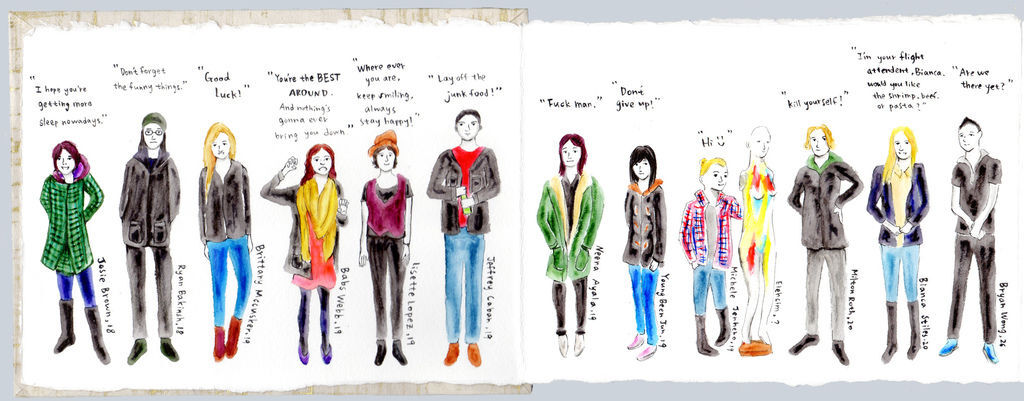 "I hope you're
getting more
sleep nowadays."
"Don't forget
the funny things."
"Good
luck!"
"You're the BEST
AROUND.
And nothing's
gonna ever
bring you down."
"Where ever
you are,
keep smiling,
always
stay happy!"
"Lay off the
junk food!"
"Fuck man."
"Don't
give up!"
"Hi"
"kill yourself!"
"I'm your flight
attendent, Bianca.
would you like
the shrimp, beef,
or pasta?"
"Are we
there yet?"
Josie Brown, 18
Ryan Bakinjh, 18
Brittany Mcwsker, 19
Babs Webb, 19
Lisette Lopez, 19
Jeffrey Cabon, 19
Neera Ayala, 19
Young Been Jun, 19
Michele
Milton Roth, 20
Bianca Stiles, 20
Bryan Wong, 26